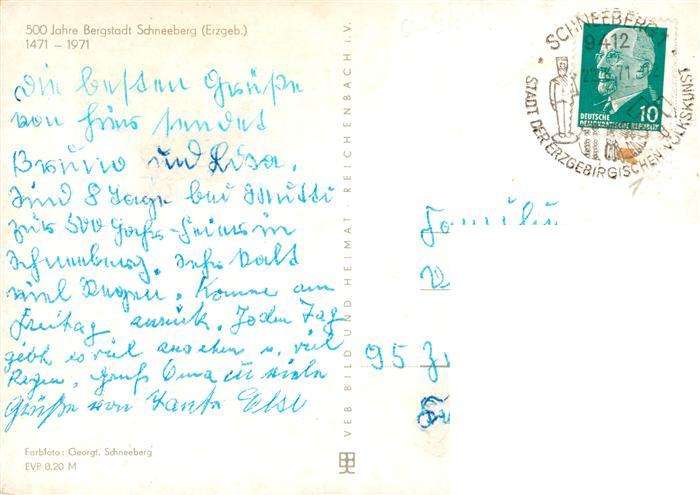 500 Jahre Bergstadt Schneeberg (Erzgeb.)
1471 – 1971
Die besten Grüße
von hier sendet
Bruno und Lisa.
Sind 8 Tage bei Mutti
zur 500 Jahr-Feier in
Schneeberg. Sehr kalt
viel Regen. Komme am
Freitag zurück. Jeden Tag
gibt es viel an sehen u. viel
Regen. Gruß Oma u viele
Grüße von Tante Else
Farbfoto: Georgi, Schneeberg
EVP 0,20 M
VEB BILD UND HEIMAT · REICHENBACH i. V.
SCHNEEBERG 1
9412
71
STADT DER ERZGEBIRGISCHEN VOLKSKUNST
10
DEUTSCHE
DEMOKRATISCHE REPUBLIK
Familie
95